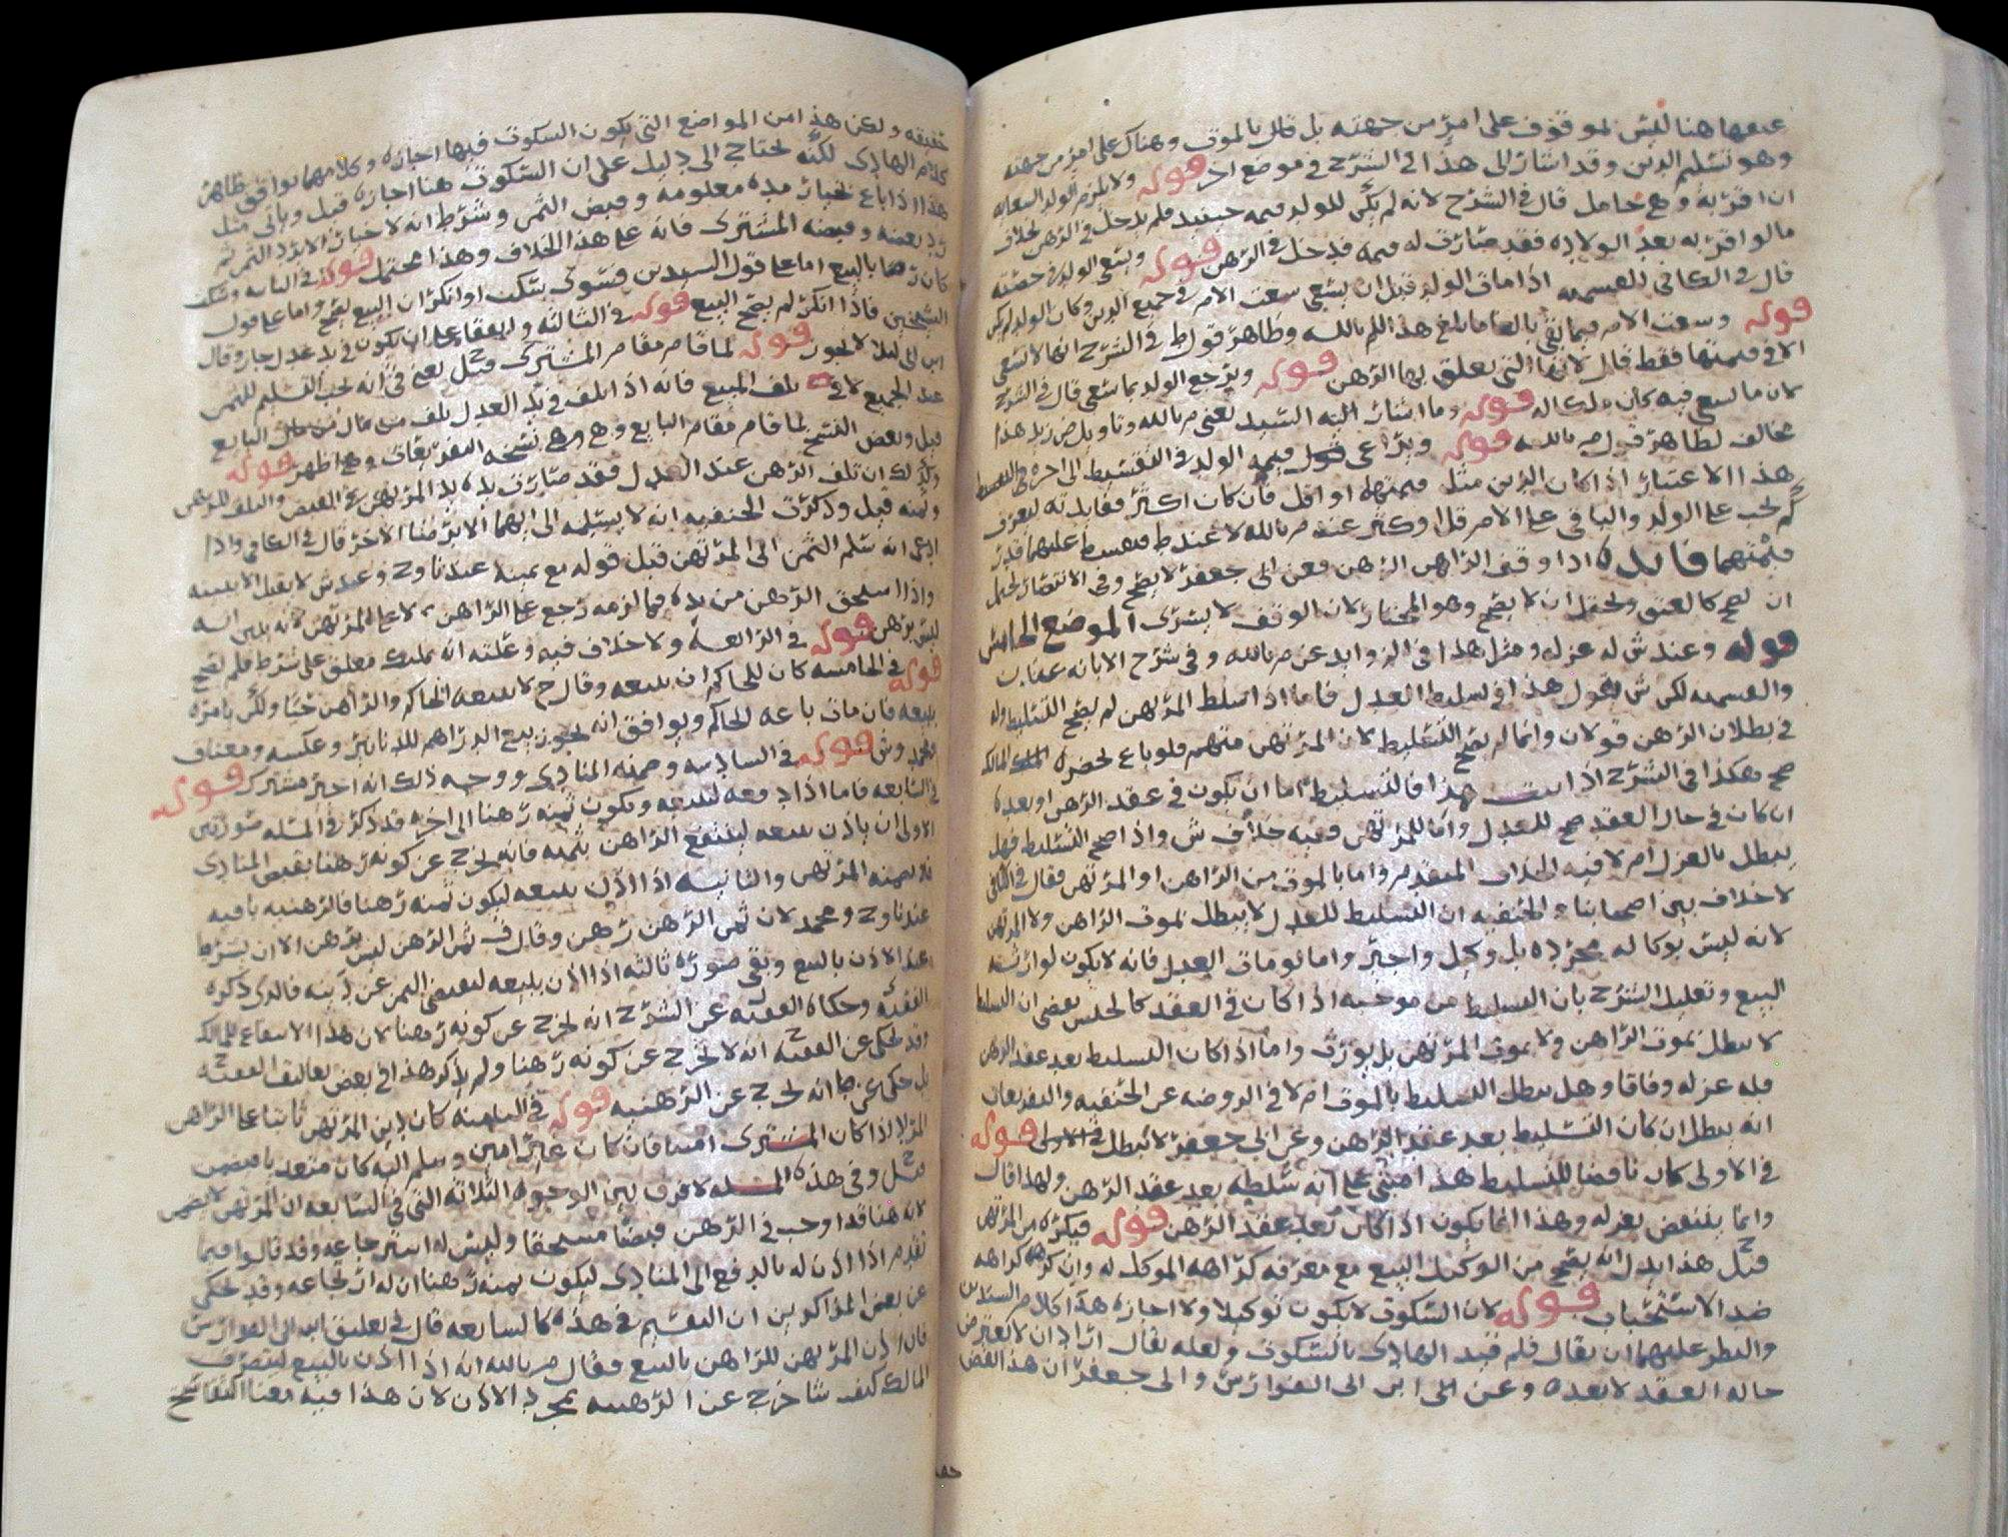 عتقها هنا ليس بموقوف على امر من جهته بل قال بالموت وهناك على امر من جهته
وهو تسليم الدين وقد اشار الى هذا في الشرح في موضع اخر قوله ولا يلزم الولد السعايه
ان اقر به وهي حامل قال في الشرح لانه لم يكن للولد قيمه حينئذ فلم يدخل في الرهن بخلاف
ما لو اقر به بعد الولاده فقد صارت له قيمه فدخل في الرهن قوله ويسعى الولد في حصته
قال في الكافي اذا مات الولد قبل ان يسعى سعت الام في جميع الدين وكان الولد لم يكن
قوله وسعت الام فيما بقي بالغا ما بلغ هذا للم بالله وظاهر قول ط في الشرح انها لا تسعى
الا في قيمتها فقط قال لانها التي تعلق بها الرهن قوله ويرجع الولد بما سعى قال في الشرح
كان ما سعى فيه كان ملكا له قوله وما اشار اليه السيد يعني م بالله وتاويل ص زيد هذا
مخالف لظاهر قول م بالله قوله ويراعى قيمه الولد في التقسيط الى اخره
هذا الاعتبار اذا كان الدين مثل قيمتهما او اقل فان كان اكثر فما يدته ليعرف
كم يجب على الولد والباقي على الام قل او كثر عند م بالله لا عند ط فيقسط عليهما قدر
قيمتهما فائده اذا وقف الراهن الرهن فعن ابي جعفر لا يصح وفي الانتصار يحتمل
ان يصح كالعتق ويحتمل ان لا يصح وهو المختار لان الوقف لا يسرى الموضع الخامس
قوله وعند ش له عزله ومثل هذا في الزوايد عن م بالله وفي شرح الابانه عن ن
لكن ش يقول هذا في تسليط العدل فاما اذا سلط المرتهن لم يصح التسليط وله
في بطلان الرهن قولان وانما لم يصح التسليط لان المرتهن متهم فلو باع بحضره المالك
صح هكذا في الشرح اذا ثبت هذا فالتسليط اما ان يكون في عقد الرهن او بعده
ان كان في حال العقد صح للعدل واما للمرتهن ففيه خلاف ش واذا صح التسليط فهل
يبطل بالعزل ام لا فيه الخلاف المتقدم واما بالموت من الراهن او المرتهن فقال في الكافي
لا خلاف بين اصحابنا والحنفيه ان التسليط للعدل لا يبطل بموت الراهن ولا المرتهن
لانه ليس بوكاله مجرده بل وكيل واجير واما لو مات العدل فانه لا يكون لوارثه
البيع وتعليل الشرح بان التسليط من موجبه اذا كان في العقد كالحبس يقضي ان التسليط
لا يبطل بموت الراهن ولا بموت المرتهن بل يورث واما اذا كان التسليط بعد عقد الرهن
فله عزله وفاقا وهل يبطل التسليط بالموت ام لا في الروضه عن الحنفيه والتفريعات
انه يبطل ان كان التسليط بعد عقد الرهن وعن ابي جعفر لا يبطل قوله
في الاولى كان ناقضا للتسليط هذا مبني على انه سلطه بعد عقد الرهن ولهذا قال
وانما ينتقض بعزله وهذا انما يكون اذا كان بعد عقد الرهن قوله فيكره من المرتهن
قيل هذا يدل انه يصح من الوكيل البيع مع معرفه كراهه الموكل له وان كراهه
ضد الاستحباب قوله لان السكوت لا يكون توكيلا ولا اجازه هذا كلام السيدين
والنظر عليهما ان يقال فلم قيد الهادي بالسكوت ولعله يقال اراد ان لا يعترض
حاله العقد لا بعده وعن ابن ابي الفوارس وابي جعفر ان هذا القبض
حقيقه ولكن هذا من المواضع التي يكون السكوت فيها اجازه وكلامهما يوافق ظاهر
كلام الهادي لكنه يحتاج الى دليل على ان السكوت هنا اجازه قيل وياتي مثل
هذا اذا باع بخيار مده معلومه وقبض الثمن وشرط انه لا خيار الا برد الثمن ثم
رد بعضه وقبضه المشتري فانه على هذا الخلاف وهذا محتمل قوله في الثانيه وسكت
كان رضا بالبيع اما على قول السيدين فسوى سكت او انكر ان البيع يصح واما على قول
الشيخين فاذا انكر لم يصح البيع قوله في الثالثه واتفقا على ان يكون في يد عدل جاز وقال
ابن ابي ليلا لا يجوز قوله لما قام مقام المشتري قيل يعني في انه يجب التسليم للثمن
عند الجميع لا في تلف المبيع فانه اذا تلف في يد العدل تلف من مال البايع
قيل وبعض النسخ لما قام مقام البايع وهو نسخه التفريعات وهي اظهر قوله
وكذلك ان تلف الرهن عند العدل فقد صارت يده يد المرتهن في القبض والتلف للمرتهن
قيل وذكرت الحنفيه انه لا يسلمه الى ايهما الا برضا الاخر قال في الكافي واذا
ادعى انه سلم الثمن الى المرتهن قبل قوله مع يمينه عندنا وح وعند ش لا يقبل الا ببينه
واذا استحق الرهن من يده فما لزمه رجع على الراهن لا على المرتهن لانه بان انه
ليس برهن قوله في الرابعه ولا خلاف فيه وعلته انه تمليك معلق على شرط فلم يصح
قوله في الخامسه كان للحاكم ان يبيعه وقال ح لا يبيعه الحاكم والراهن حيا ولكن يامره
ببيعه فان مات باعه الحاكم ويوافق انه يجوز بيع الدراهم للدنانير وعكسه ومعناف
محمد وش قوله في السادسه وضمنه المنادي ووجه ذلك انه اجير مشترك قوله
في السابعه فاما اذا دفعه لبيعه ويكون ثمنه رهنا الى اخره قد ذكر في المسئله صورتين
الاولى ان ياذن ببيعه لينتفع الراهن بثمنه فانه يخرج عن كونه رهنا بقبض المنادي
فلا يضمنه المرتهن والثانيه اذا اذن ببيعه ليكون ثمنه رهنا فالرهنيه باقيه
عندنا وح ومحمد لان ثمن الرهن رهن وقال ف ثمن الرهن ليس برهن الا ان يشرط
عند الاذن بالبيع وبقي صوره ثالثه اذا اذن ببيعه ليقضي الثمن عن دينه فالذي ذكره
الفقيه وحكاه الفقيه عن الشرح انه يخرج عن كونه رهنا لان هذا الانتفاع للمالك
وقد حكى عن الفقيه انه لا يخرج عن كونه رهنا ولم يذكر هذا في بعض تعاليق الفقيه
بل حكى عن ص انه يخرج عن الرهنيه قوله في الثامنه كان دين المرتهن ثابتا على الراهن
المراد اذا كان المشتري امينا فان كان غير امين وسلم اليه كان متعديا فيضمن
قيل وفي هذه المسله لا فرق بين الوجوه الثلاثه التي في السابعه ان المرتهن لا يضمن
لانه هنا قد اوجب في الرهن قبضا مستحقا وليس له استرجاعه وقد قالوا فيما
تقدم اذا اذن له بالدفع الى المنادي ليكون ثمنه رهنا ان له ارتجاعه وقد حكى
عن بعض المذاكرين ان التقسيم في هذه كالسابعه قال في تعليق ابن ابي الفوارس
فان اذن المرتهن للراهن بالبيع فقال م بالله انه اذا اذن بالبيع ليتصرف
المالك كيف شا خرج عن الرهنيه بمجرد الاذن لان هذا فيه معنا الفسخ